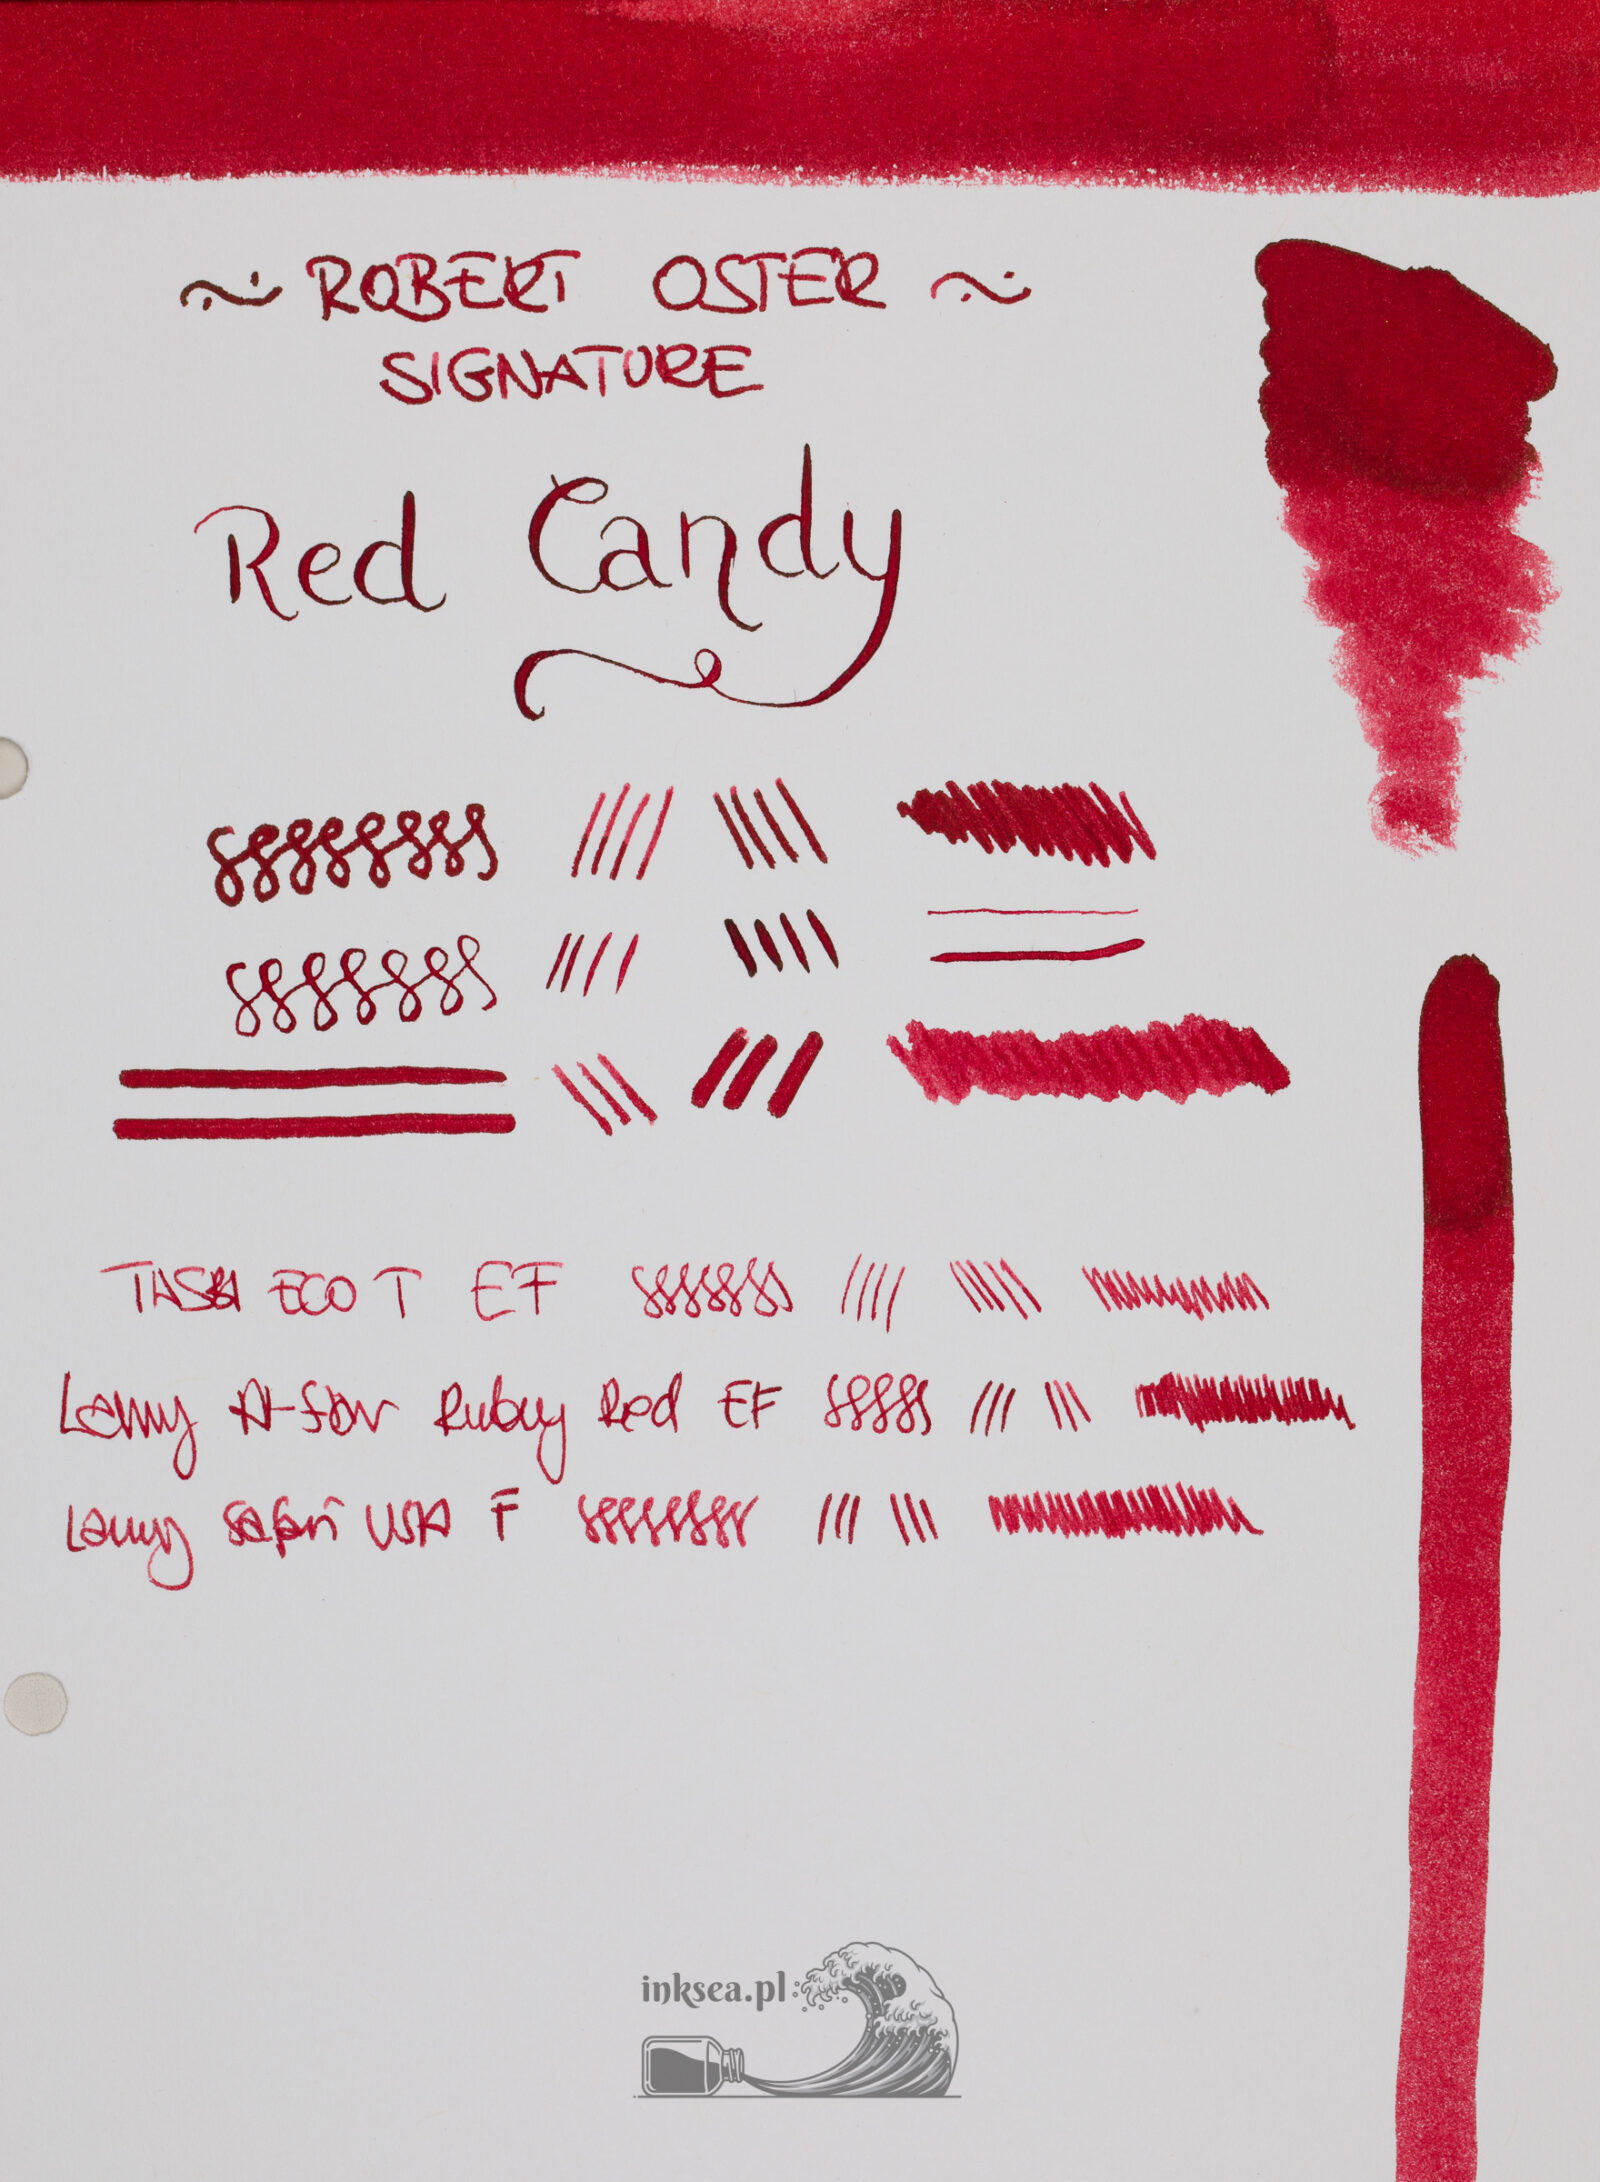 ~ ROBERT OSTER ~
SIGNATURE
Red Candy
TWSBI ECO T EF
Lamy Al-star Ruby Red EF
Lamy Safari USA F
inksea.pl